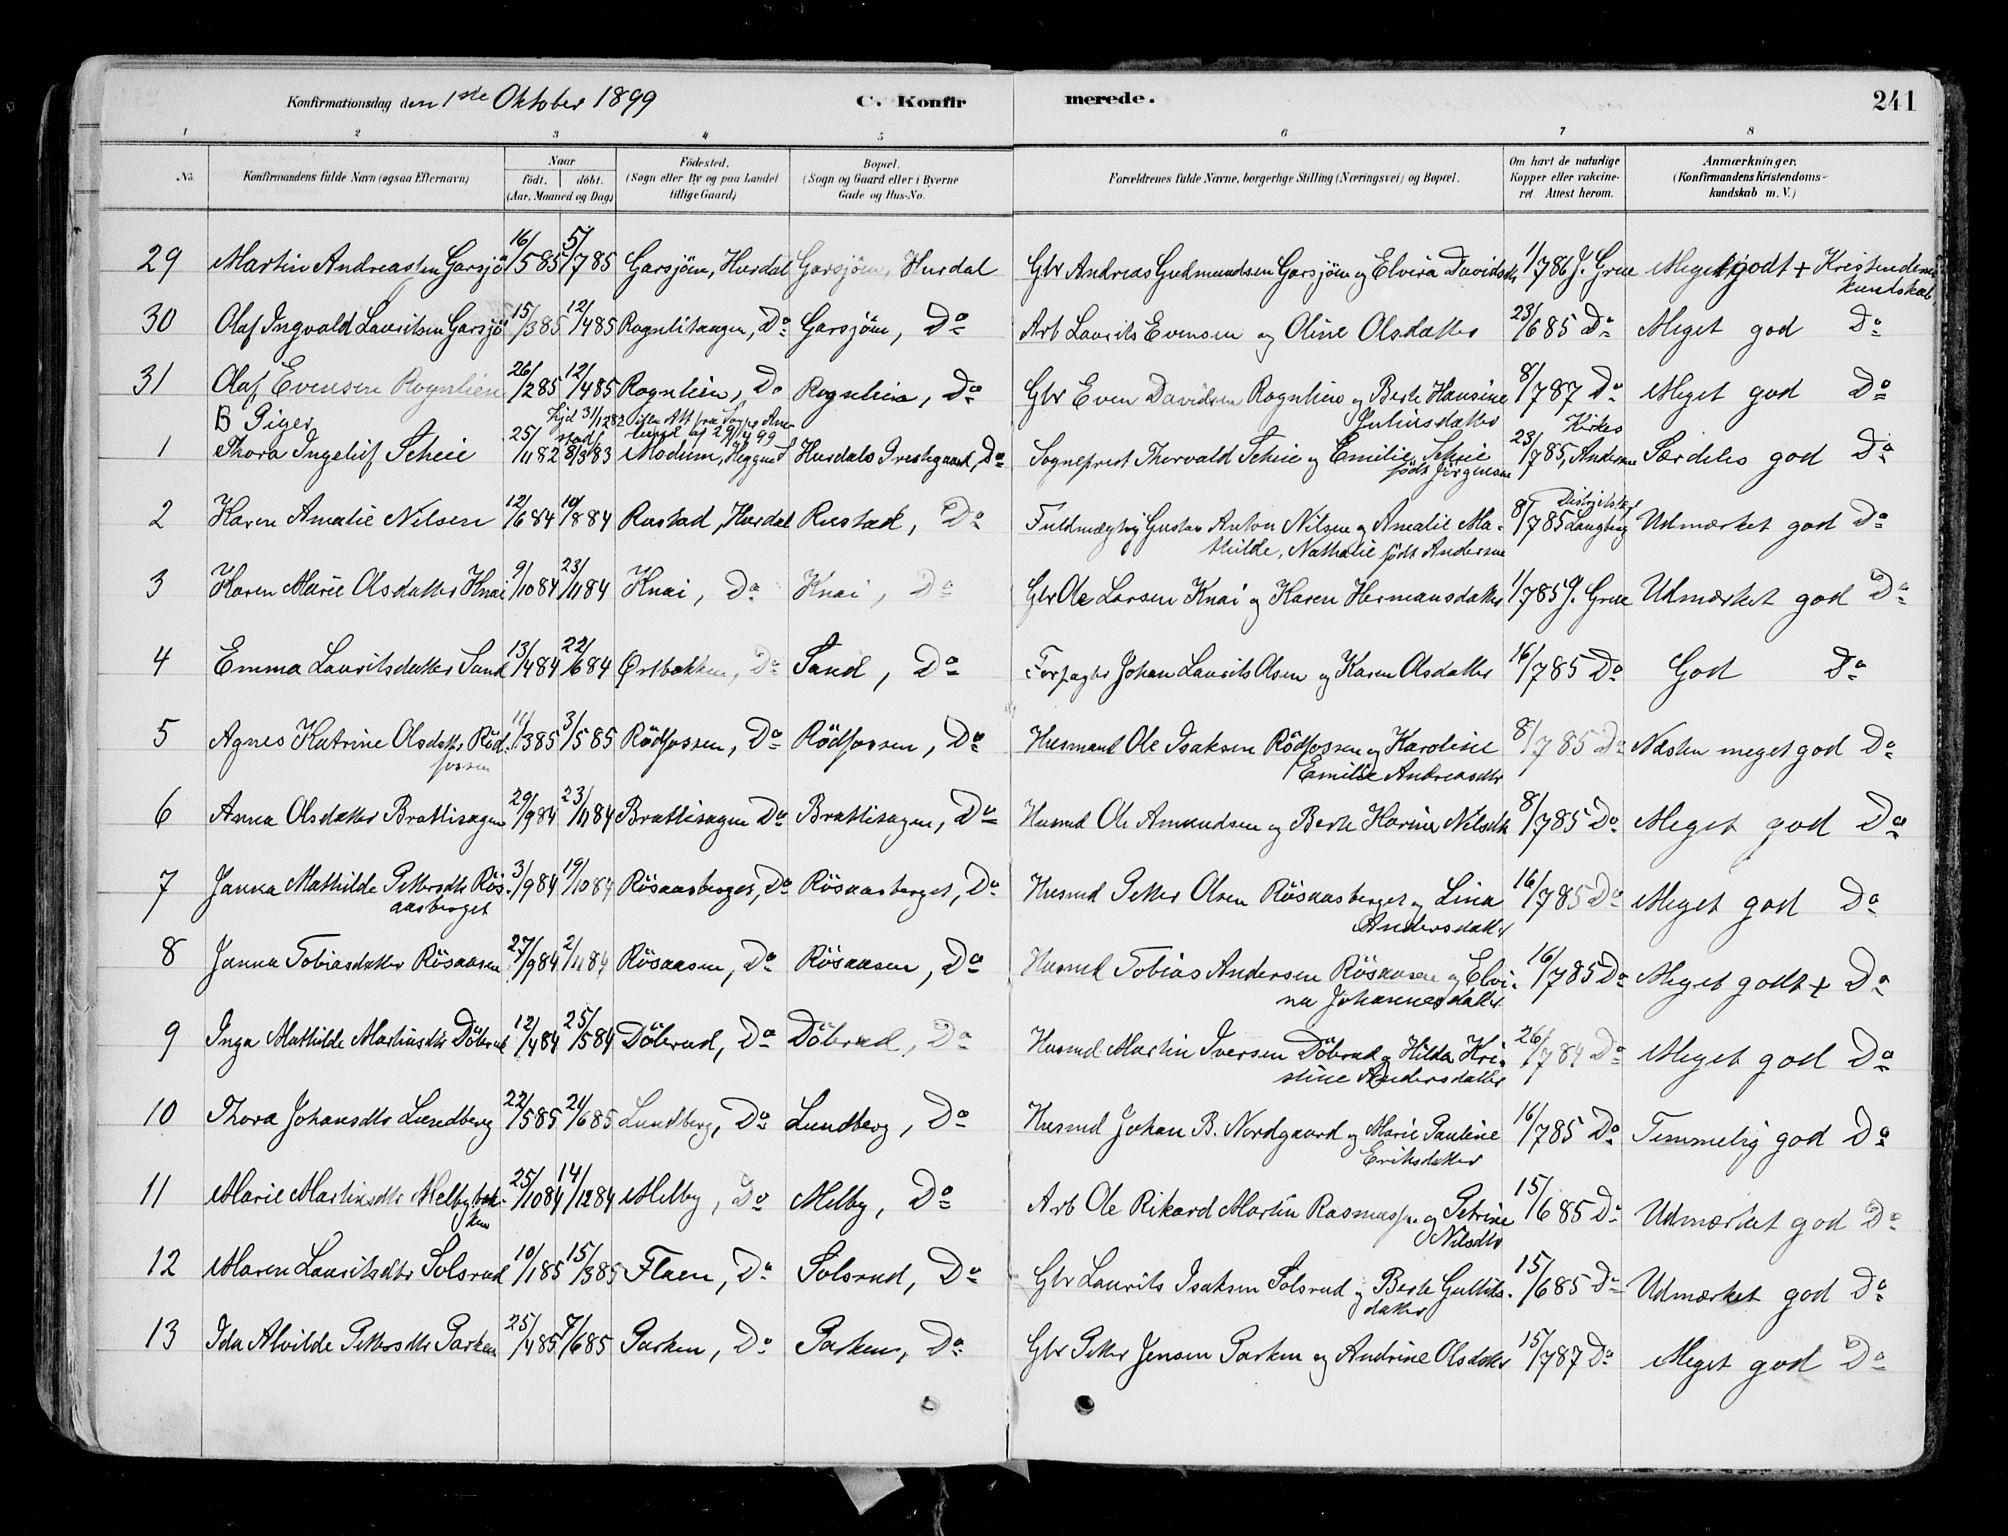 Konfirmationsdag den 1ste Oktober 1899 C. Konfirmerede. 241
1 2 3 4 5 6 7 8
No. Konfirmandens fulde Navn (ogsaa Efternavn) Naar født. døbt. (Aar, Maaned og Dag) Fødested. (Sogn eller By og paa Landet tillige Gaard) Bopæl. (Sogn og Gaard eller i Byerne Gade og Hus-No. Forældrenes fulde Navne, borgerlige Stilling (Næringsvei) og Bopæl. Om havt de naturlige Kopper eller vakcineret. Attest herom. Anmærkninger. (Konfirmandens Kristendomskundskab m. V.)
29 Martin Andreassen Garsjö 16/5 85 5/7 85 Garsjöen, Hurdal Garsjöen, Hurdal Gbr Andreas Gudmundsen Garsjöen og Elvira Davidsdtr 1/7 86 J. Grue Meget godt + Kristendoms kundskab
30 Olaf Ingvald Lauritsen Garsjö 15/3 85 12/4 85 Rognlitangen, Do Garsjöen, Do Arb Laurits Evensen og Oline Olsdatter 23/6 85 Do Meget god Do
31 Olaf Evensen Rognlien 26/2 85 12/4 85 Rognlien, Do Rognlien, Do Gbr Even Davidsen Rognlien og Berte Hansine Juliusdatter 8/7 87 Do Meget god Do
B Piger
1 Thora Ingeleif Scheie 25/11 82 8/3 83 Modum, Heggen Hurdals Prestegaard, Do Sogneprest Thorvald Scheie og Emilie Scheie født Jørgensen 23/7 85, Kirkes Andersen Særdeles god Do
2 Karen Amalie Nilsen 12/6 84 10/8 84 Rustad, Hurdal Rustad, Do Fuldmægtig Gustav Anton Nilsen og Amalie Mathilde, Nathalie født Andersen 8/7 85 Distriktsl. Langberg Udmærket god Do
3 Karen Marie Olsdatter Knai 9/10 84 23/11 84 Knai, Do Knai, Do Gbr Ole Larsen Knai og Karen Hermansdatter 1/7 85 J. Grue Udmærket god Do
4 Emma Lauritsdatter Sand 13/4 84 22/6 84 Østbakken, Do Sand, Do Forpagter Johan Laurits Olsen og Karen Olsdatter 16/7 85 Do God Do
5 Agnes Katrine Olsdtr Rödfossen 11/3 85 3/5 85 Rödfossen, Do Rödfossen, Do Husmand Ole Isaksen Rödfossen og Karoline Emilie Andreasdtr 8/7 85 Do Næsten meget god Do
6 Anna Olsdatter Brattisagen 29/9 84 23/11 84 Brattisagen Do Brattisagen, Do Husmd Ole Amundsen og Berte Karine Nilsdtr 8/7 85 Do Meget god Do
7 Janna Mathilde Pettersdtr Rösaasberget 3/9 84 19/10 84 Rösaasberget, Do Rösaasberget, Do Husmd Petter Olsen Rösaasberget og Lina Andersdatter 16/7 85 Do Meget god Do
8 Janna Tobiasdatter Rösaasen 27/9 84 2/11 84 Rösaasen, Do Rösaasen, Do Husmd Tobias Andersen Rösaasen og Elvina Johannesdatter 16/7 85 Do Meget godt + Do
9 Inga Mathilde Martinsdtr Dölerud 12/4 84 25/5 84 Dölerud, Do Dölerud, Do Husmd Martin Iversen Dölerud og Hilda Kristine Andersdatter 26/7 84 Do Meget god Do
10 Thora Johansdtr Lundberg 22/5 85 21/6 85 Lundberg, Do Lundberg, Do Husmd Johan B. Nordgaard og Marie Pauline Eriksdatter 16/7 85 Do Temmelig god Do
11 Marie Martinsdtr Melbybakken 25/10 84 14/12 84 Melby, Do Melby, Do Arb Ole Rikard Martin Rasmussen og Petrine Nilsdtr 15/6 85 Do Udmærket god Do
12 Maren Lauritsdtr Solsrud 10/1 85 15/3 85 Flaen, Do Solsrud, Do Gbr Laurits Isaksen Solsrud og Berte Gulliksdatter 15/6 85 Do Udmærket god Do
13 Ida Alvilde Pettersdtr Parken 25/4 85 7/6 85 Parken, Do Parken, Do Gbr Petter Jensen Parken og Andrine Olsdatter 15/7 87 Do Meget god Do